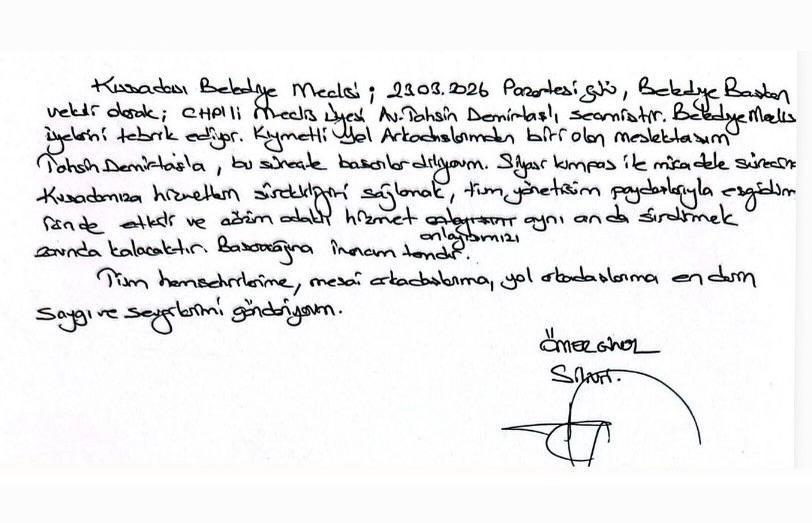 Kuşadası Belediye Meclisi; 23.03.2026 Pazartesi günü, Belediye Başkan
vekili olarak; CHP'li Meclis üyesi Av. Tahsin Demirtaş'ı seçmiştir. Belediye Meclis
üyelerini tebrik ediyor. Kıymetli Yol Arkadaşlarımdan biri olan meslektaşım
Tahsin Demirtaş'a, bu süreçte başarılar diliyorum. Siyasi kumpas ile mücadele sürecinde
Kuşadamıza hizmetlerin sürekliliğini sağlamak, tüm yönetişim paydaşlarıyla eşgüdüm
içinde etkili ve çözüm odaklı hizmet aynı anda sürdürmek
anlayışımızı
zorunda kalacaktır. Başaracağına inancım tamdır.
Tüm hemşehrilerime, mesai arkadaşlarıma, yol arkadaşlarıma en derin
saygı ve sevgilerimi gönderiyorum.
ÖMER GÜNEL
Silivri.